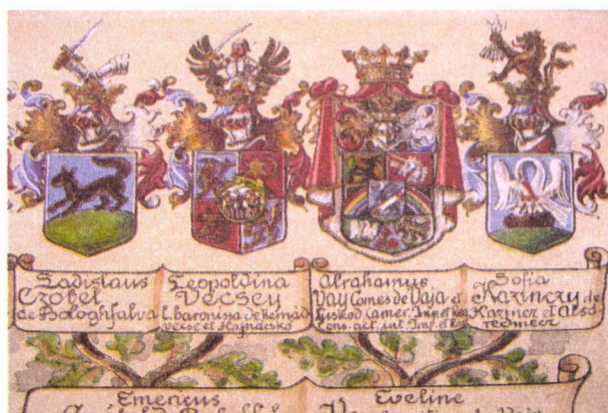 Ladislaus
Czobel
de Bologhfalva
Leopoldina
Vecsey
l. baronissa de Hernád
vecse et Hajnácskő
Abrahamus
Vay Comes de Vaja et
Luskod Camer. Imp. et
Cons. act. int. Imp. et
Sofia
Kazinczy de
Kazincz et Alsó
redmecz
Emericus
Eveline